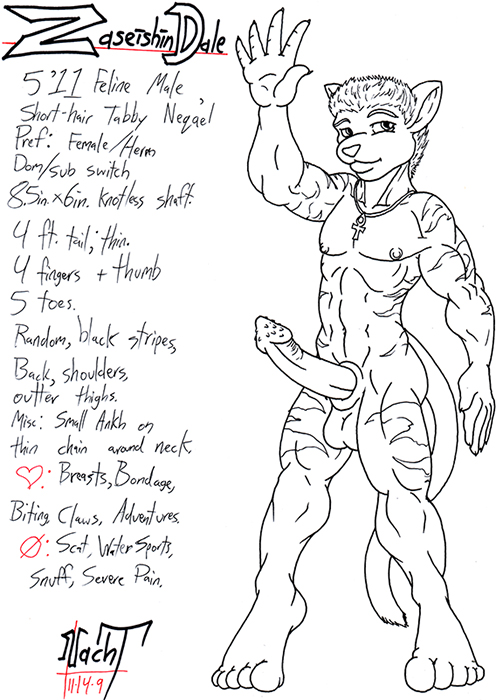 Zaseishin Dale
5'11 Feline Male
Short-hair Tabby Neqa'el
Pref: Female/Herm
Dom/sub switch
8.5in.x6in. knotless shaft.
4 ft. tail; thin.
4 fingers + thumb
5 toes.
Random, black stripes,
Back, shoulders,
outter thighs.
Misc: Small Ankh on
thin chain around neck.
♡: Breasts, Bondage,
Biting, Claws, Adventures.
Ø: Scat, Water Sports,
Snuff, Severe Pain.
NachT
11-14-9